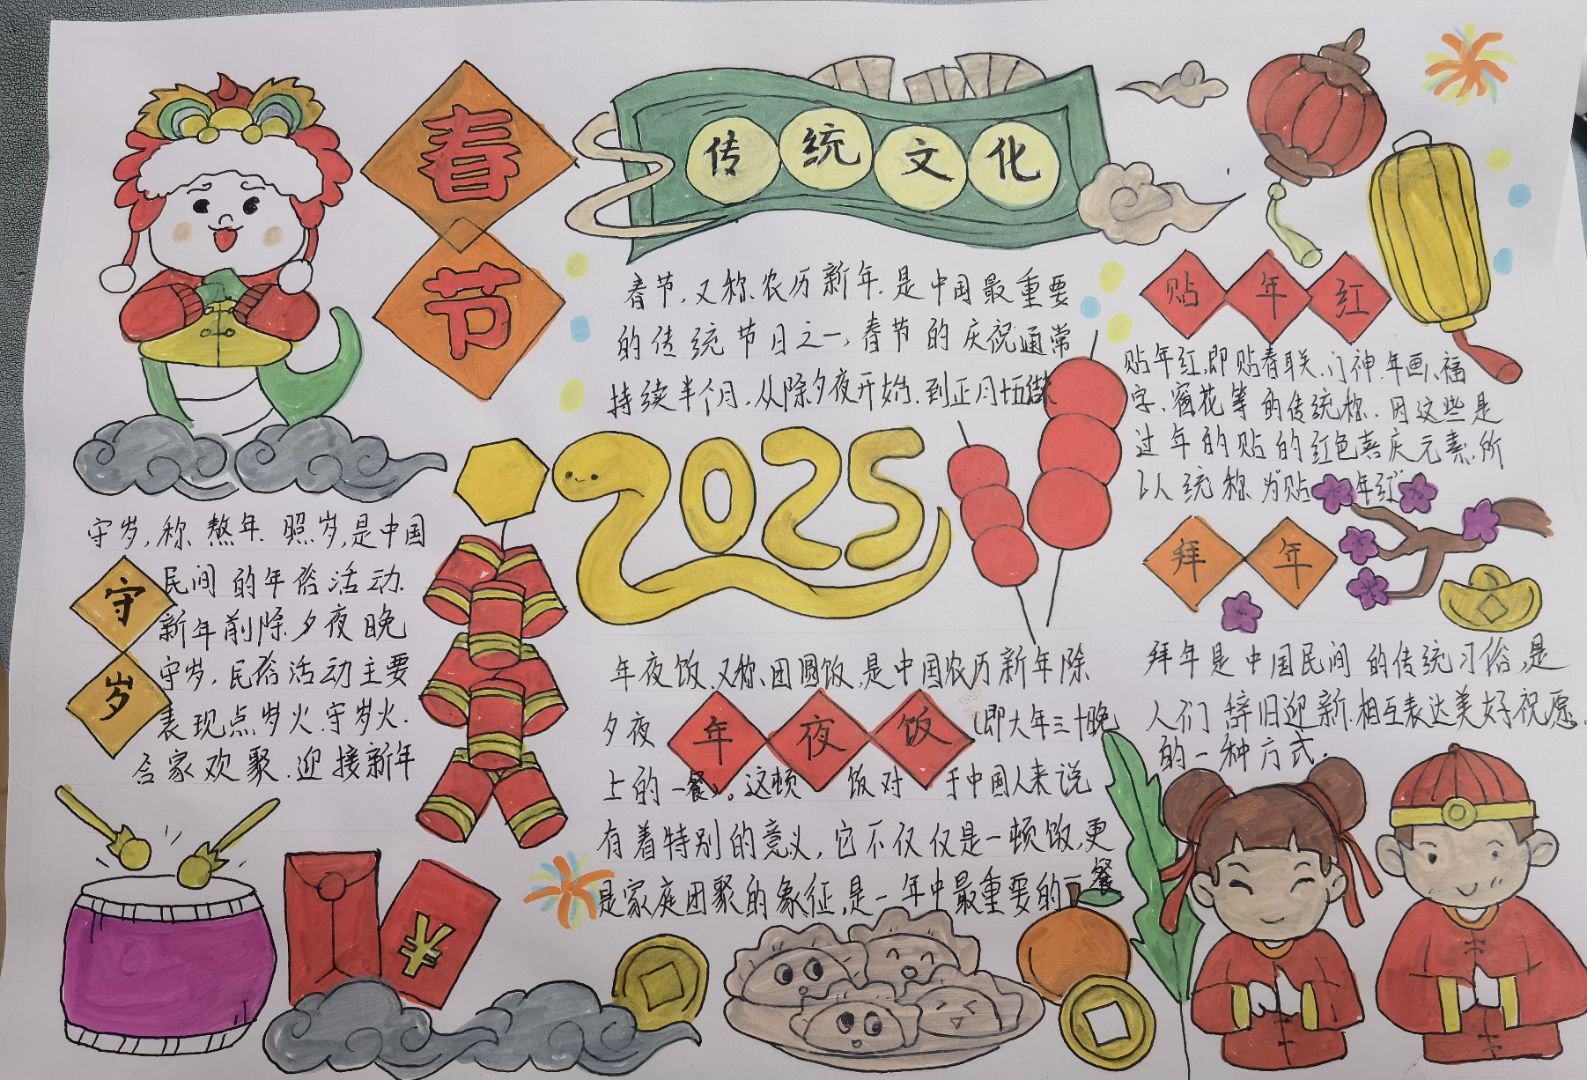 春节
传统文化
春节,又称农历新年,是中国最重要
的传统节日之一,春节的庆祝通常
持续半个月,从除夕夜开始,到正月十五结束
贴年红
贴年红,即贴春联、门神、年画、福
字、窗花等的传统称.因这些是
过年的贴的红色喜庆元素,所
以统称为"贴年红"
2025
守岁
守岁,称熬年、照岁,是中国
民间的年俗活动.
新年前除夕夜晚
守岁,民俗活动主要
表现点岁火.守岁火.
合家欢聚.迎接新年
拜年
拜年是中国民间的传统习俗,是
人们辞旧迎新.相互表达美好祝愿.
的一种方式.
年夜饭
年夜饭,又称、团圆饭,是中国农历新年除
夕夜(即大年三十晚
上的一餐)。这顿饭对于中国人来说
有着特别的意义,它不仅仅是一顿饭,更
是家庭团聚的象征,是一年中最重要的一餐
¥